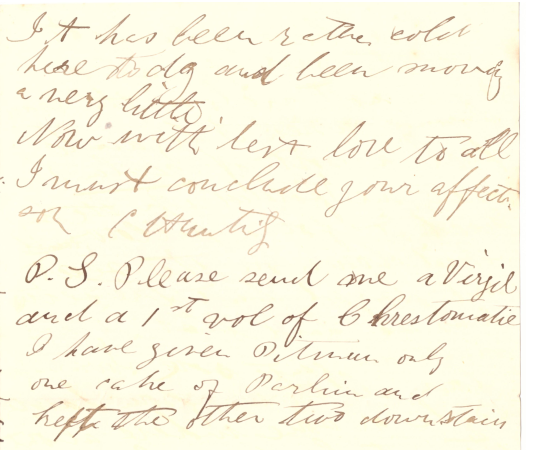 It has been rather cold
here to day and been snowing
a very little
Now with best love to all
I must conclude your affect.
son C Hunting
P.S. Please send me a Virgil
and a 1st vol of Chrestomatie
I have given Pitman only
one cake of and
left the other two downstairs